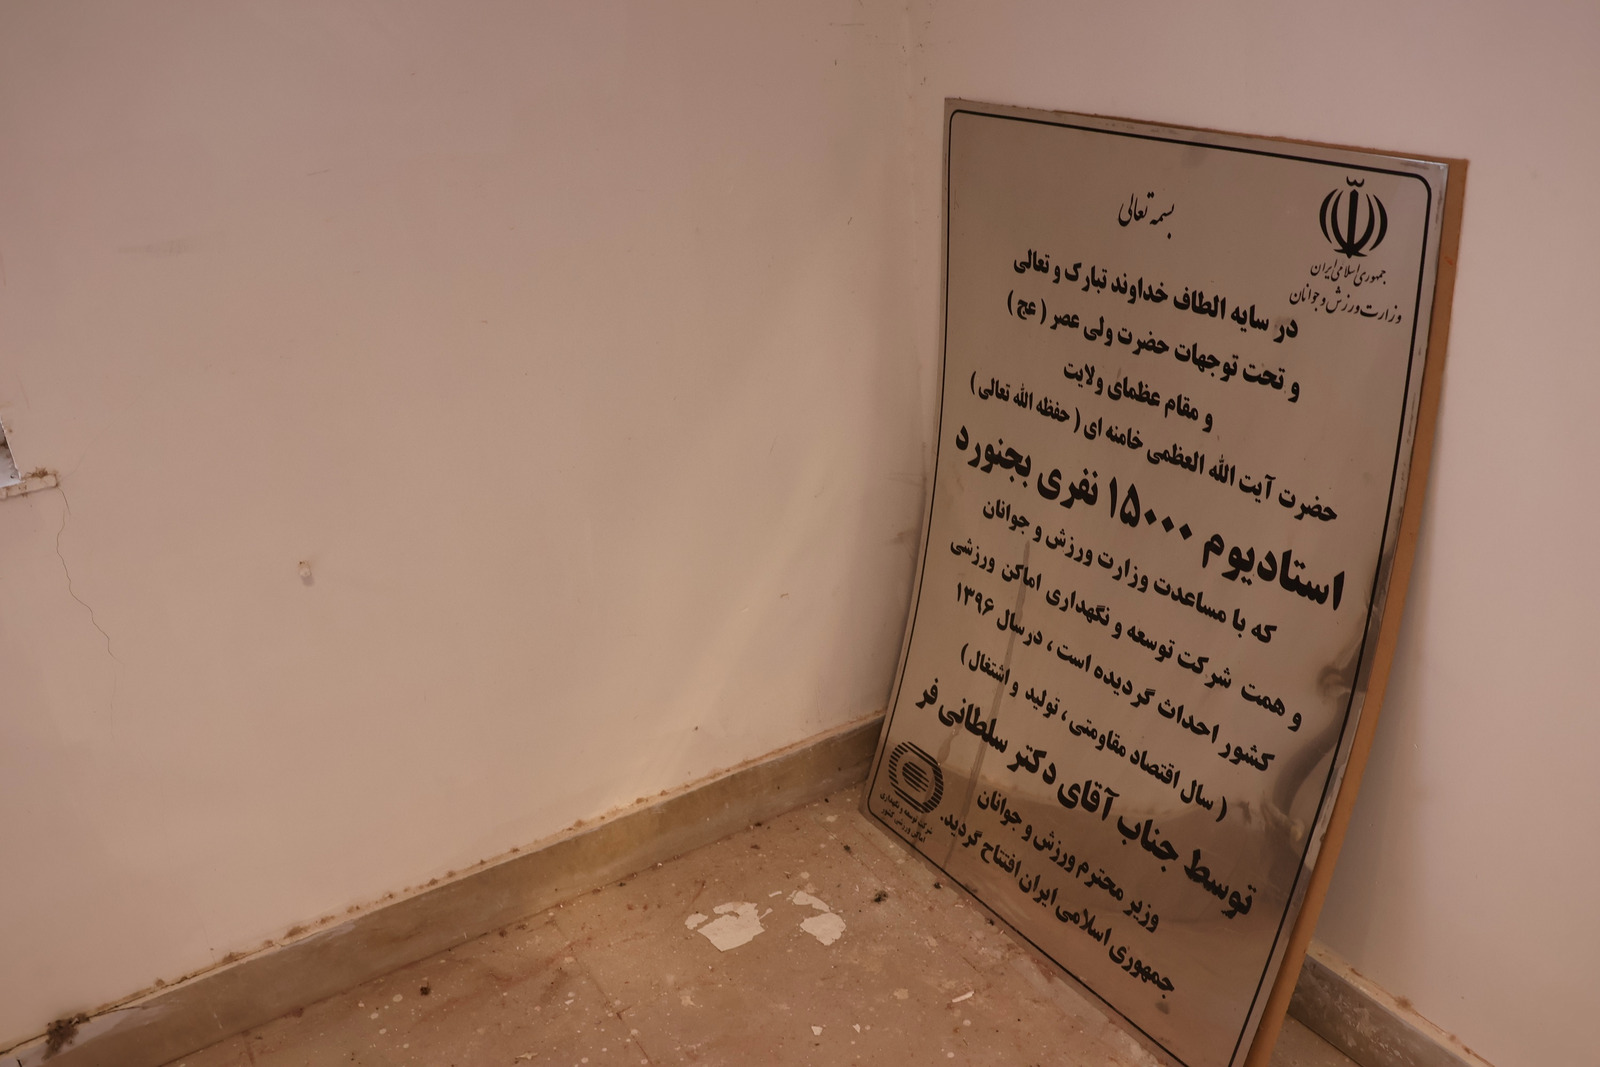 بسمه تعالی
جمهوری اسلامی ایران
وزارت ورزش و جوانان
در سایه الطاف خداوند تبارک و تعالی
و تحت توجهات حضرت ولی عصر ( عج )
و مقام عظمای ولایت
حضرت آیت الله العظمی خامنه ای ( حفظه الله تعالی )
استادیوم ۱۵۰۰۰ نفری بجنورد
که با مساعدت وزارت ورزش و جوانان
و همت شرکت توسعه و نگهداری اماکن ورزشی
کشور احداث گردیده است ، درسال ۱۳۹۶
( سال اقتصاد مقاومتی ، تولید و اشتغال )
توسط جناب آقای دکتر سلطانی فر
وزیر محترم ورزش و جوانان
جمهوری اسلامی ایران افتتاح گردید.
شرکت توسعه و نگهداری
اماکن ورزشی کشور